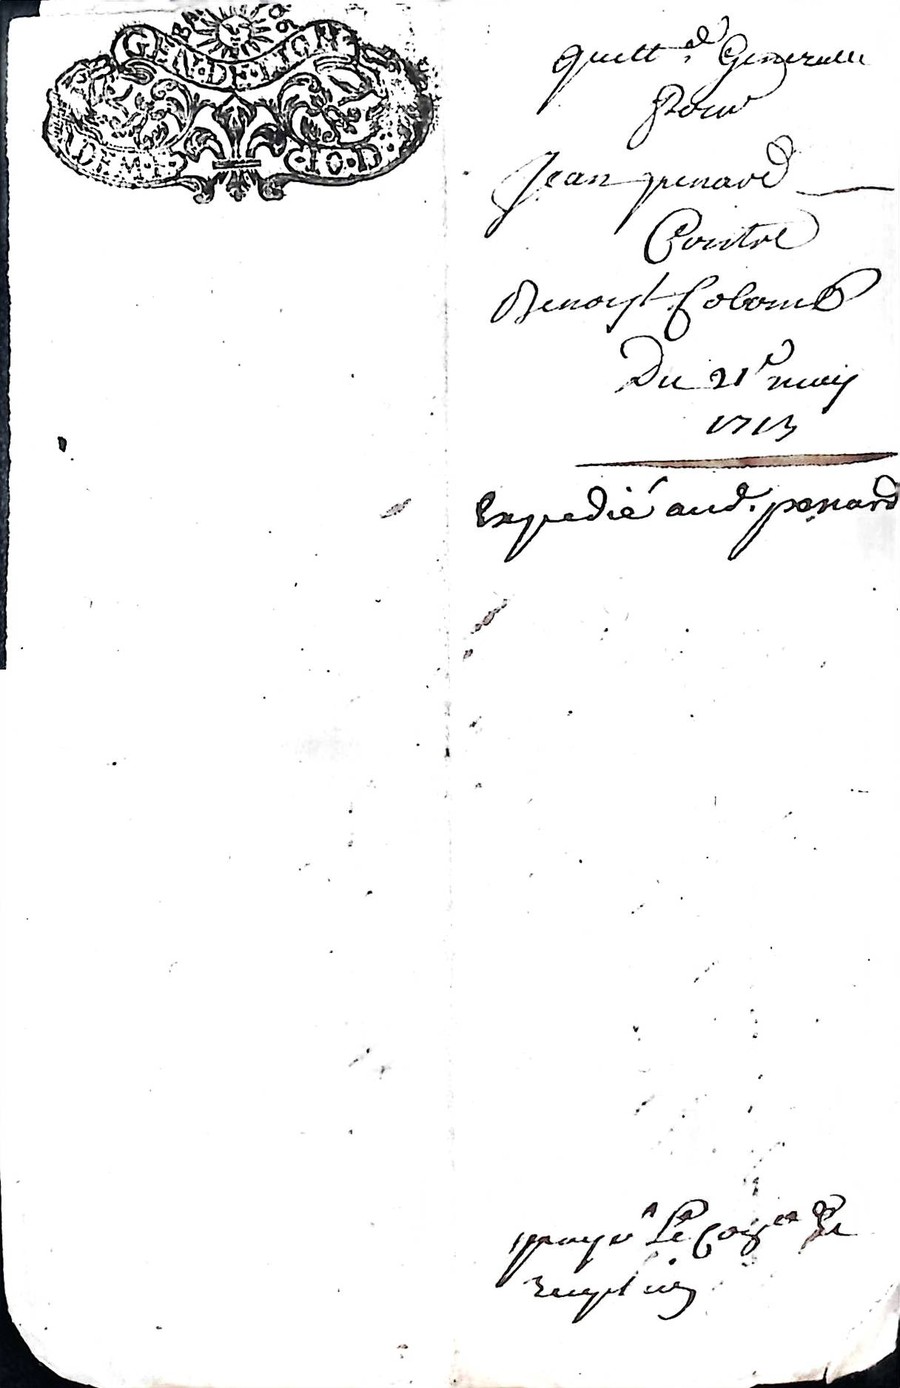 GEN·DE·LION
10·D·
quitt.e Generalle
Pour
Jean penard
Contre
Benoist Colomb
Du 21e may
1713
Expedié aud. penard